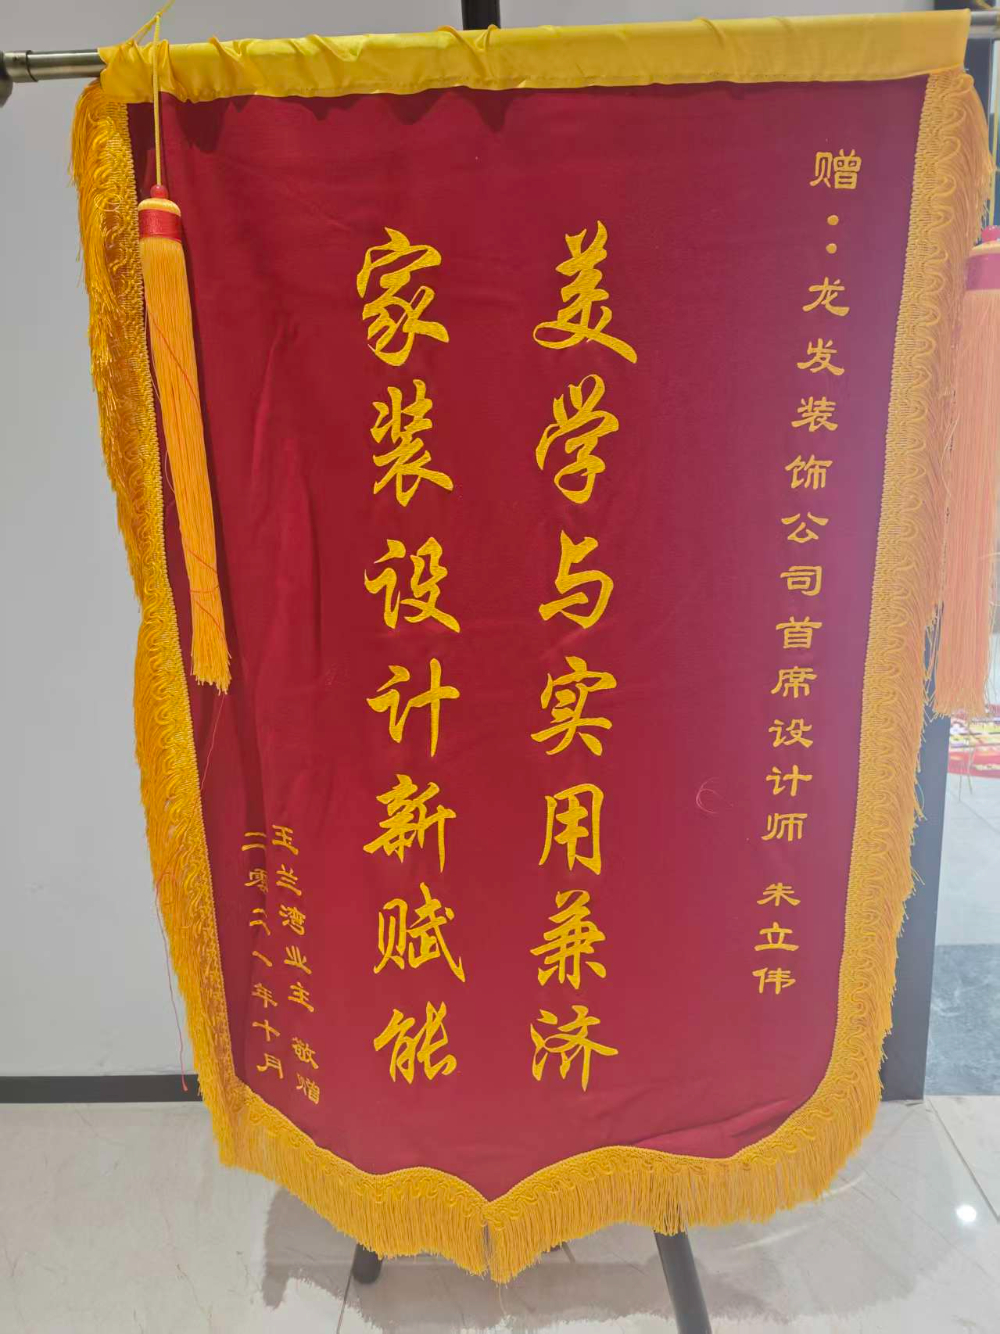 赠：龙发装饰公司首席设计师 朱立伟
美学与实用兼济
家装设计新赋能
玉兰湾业主 敬赠
二零二八年十月